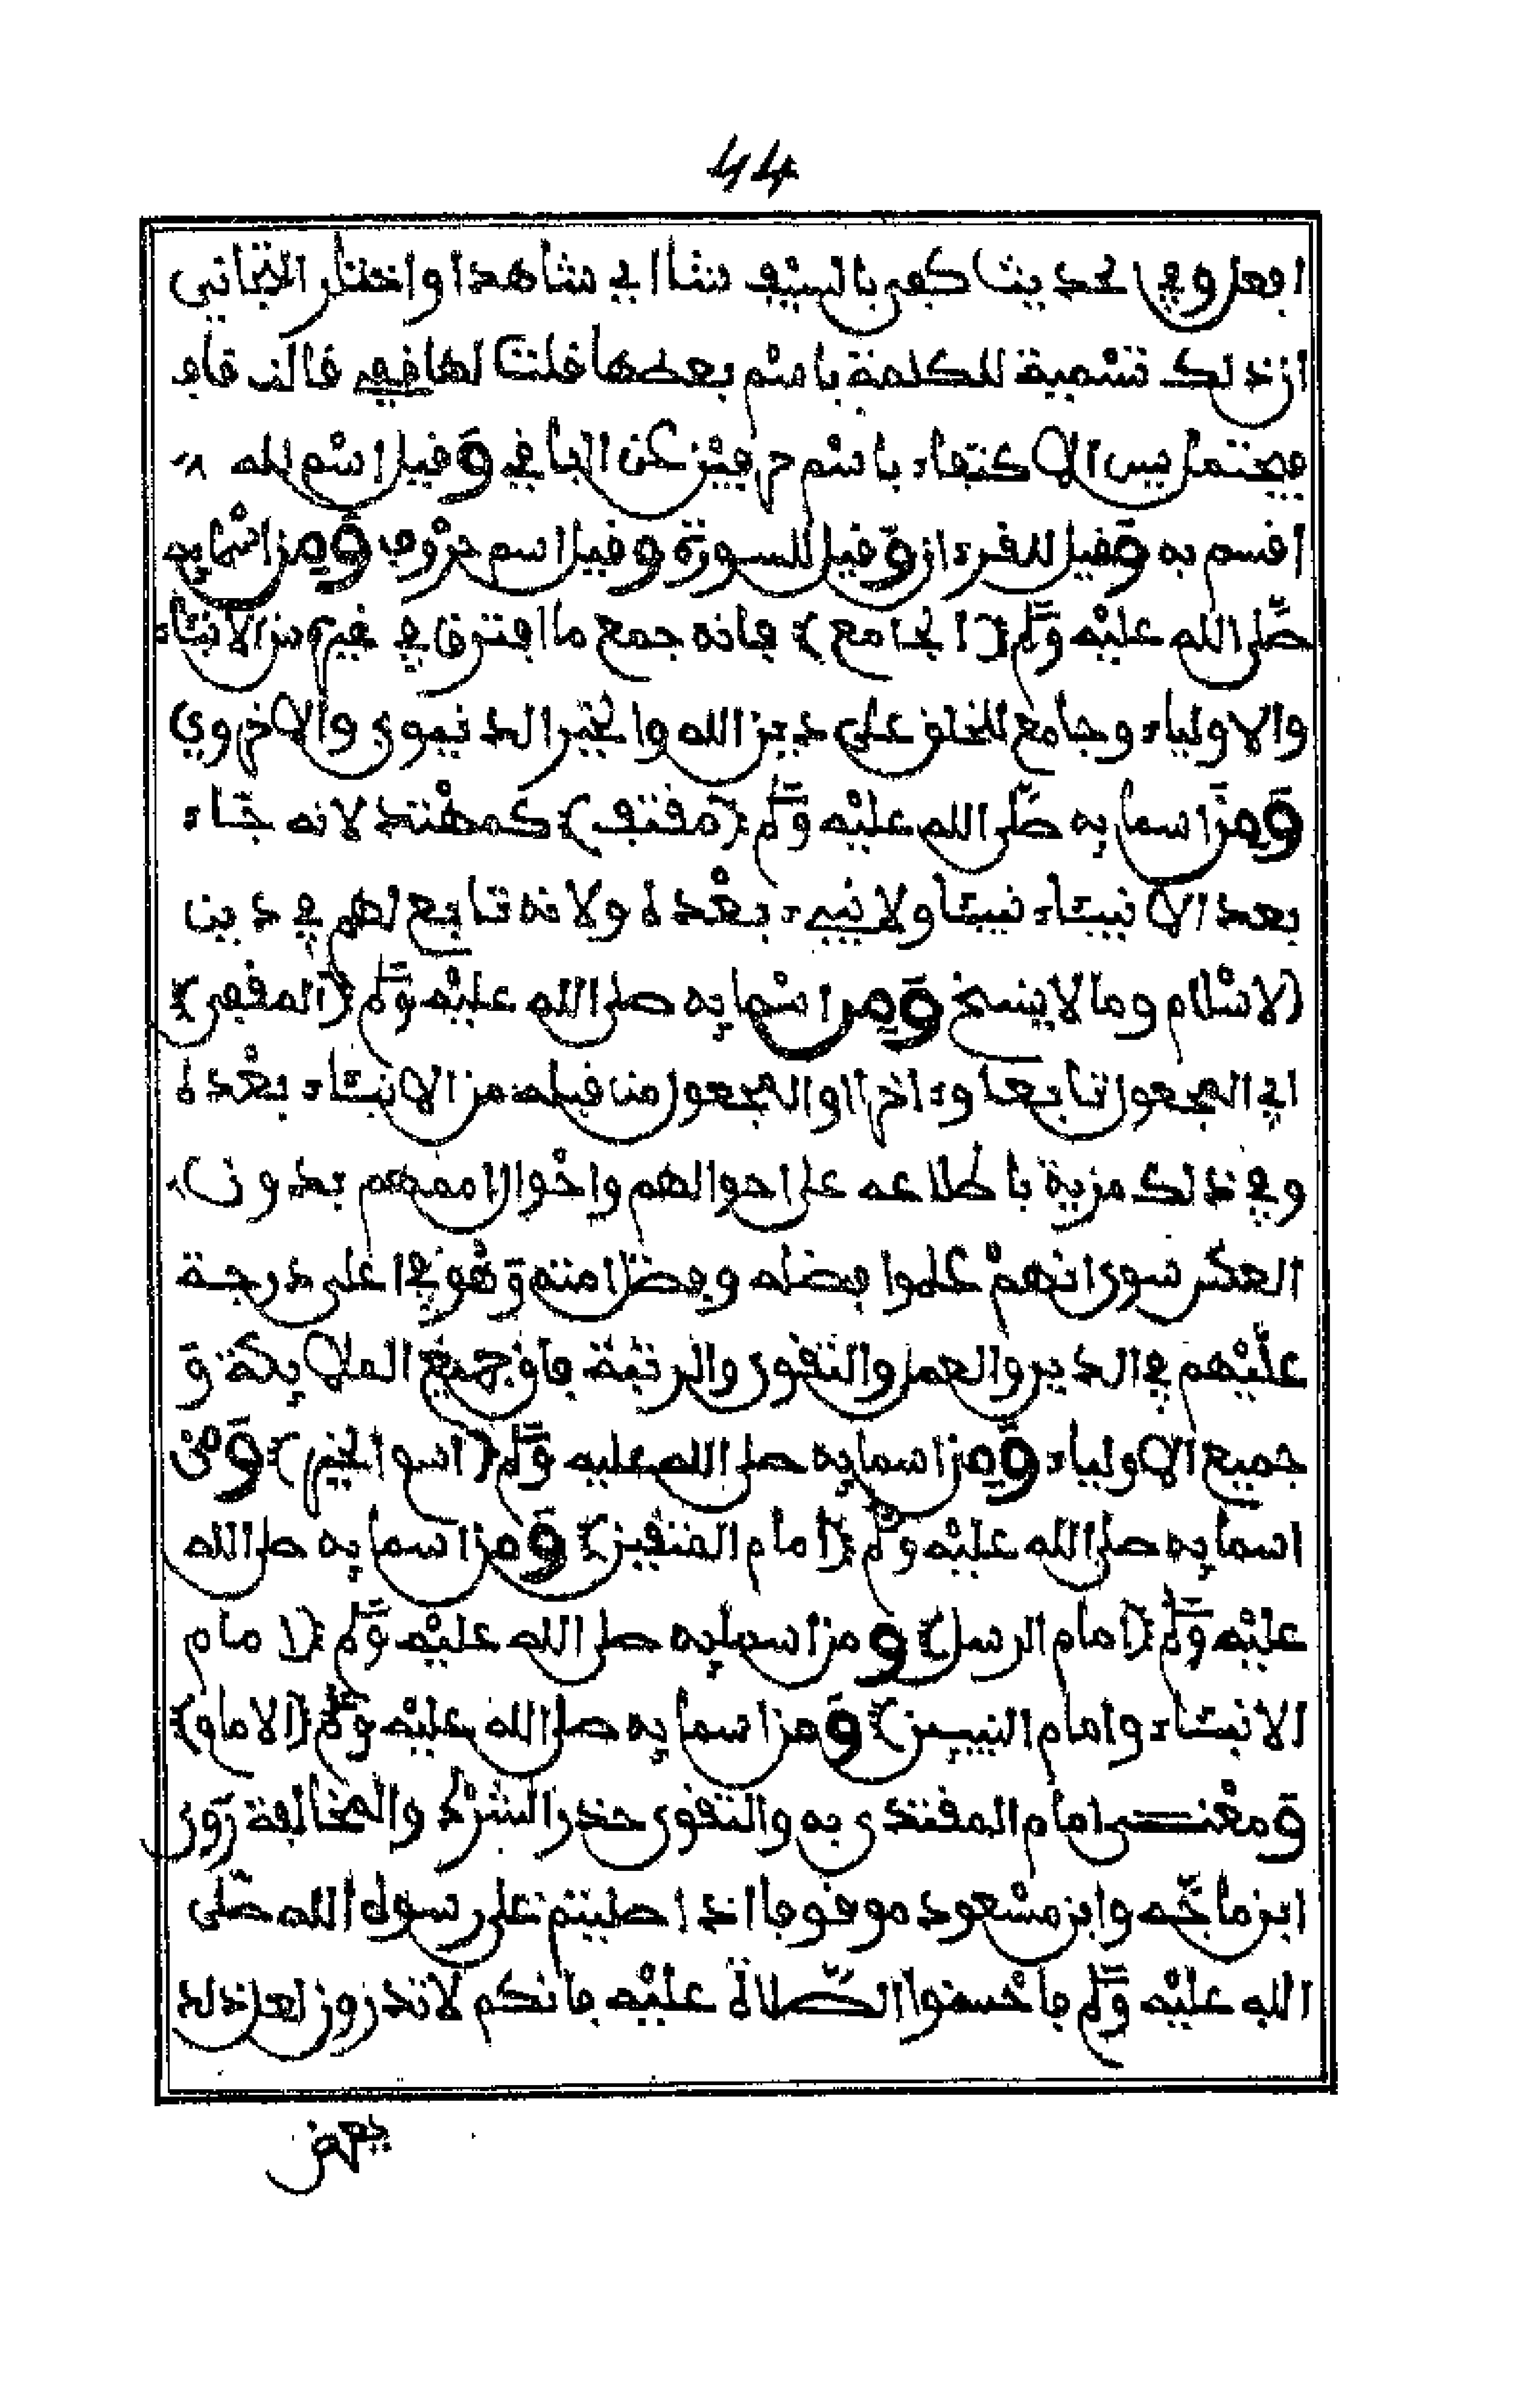 44
افعل وفي لحديث كفى بالسيف شا اي شاهدا واختار التجاني
ان ذلك تسمية للكلمة باسم بعضها قلت لها قفي قالت قاف
فيحتمل يس الاكتفاء باسم حرفين عن الباقي وقيل اسم لله
اقسم به وقيل للقرءان وقيل للسورة وقيل اسم حروف ومن اسمايه
صلى الله عليه وسلم (الجامع) فانه جمع ما افترق في غيره من الانبياء
والاولياء وجامع للخلق على دين الله والخير الدنيوي والاخروي
ومن اسمايه صلى الله عليه وسلم (مقتف) كمهتد لانه جاء
بعد الانبياء نبيا ولا نبيء بعده ولانه تابع لهم في دين
الاسلام وما لا ينسخ ومن اسمايه صلى الله عليه وسلم (المقفى)
اي المجعول تابعا وءاخرا او المجعول من قبله من الانبياء بعده
وفي ذلك مزية باطلاعه على احوالهم واحوال اممهم بدون
العكس سوى انهم علموا بفضله وبفضل امته وهو في اعلى درجة
عليهم في الدين والعمل والتقوى والرتبة فاق جميع الملايكة و
جميع الاولياء ومن اسمايه صلى الله عليه وسلم (اسو الخيم) ومن
اسمايه صلى الله عليه وسلم (امام المتقين) ومن اسمايه صلى الله
عليه وسلم (امام الرسل) ومن اسمايه صلى الله عليه وسلم (امام
الانبياء وامام النبيين) ومن اسمايه صلى الله عليه وسلم (الامام)
ومعنى امام المقتدى به والتقوى حذر الشرك والمخالفة روى
ابن ماجه وابن مسعود موقوفا اذا صليتم على رسول الله صلى
الله عليه وسلم فاحسنوا الصلاة عليه فانكم لا تدرون لعل ذلك
يعرض